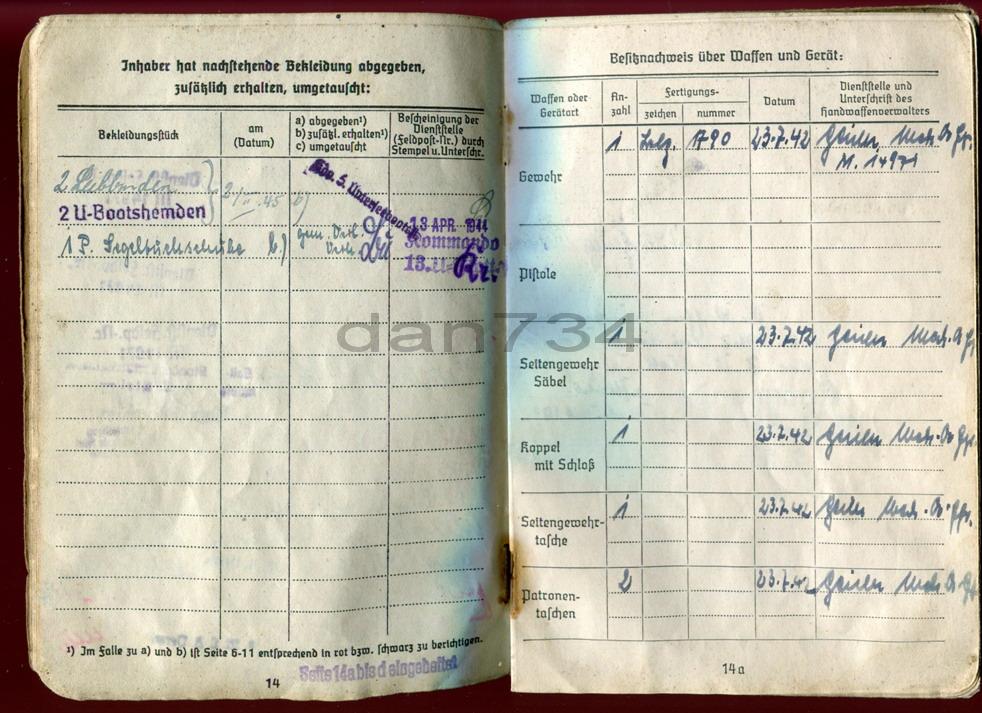 Inhaber hat nachstehende Bekleidung abgegeben,
zusätzlich erhalten, umgetauscht:
Bekleidungsstück
am
(Datum)
a) abgegeben¹)
b) zusätzl. erhalten¹)
c) umgetauscht
Bescheinigung der
Dienststelle
(Feldpost-Nr.) durch
Stempel u. Unterschr.
2 Leibbinden
2 U-Bootshemden
1 P. Segeltuchschuhe b)
13 APR. 1944
Kommando
¹) Im Falle zu a) und b) ist Seite 6-11 entsprechend in rot bzw. schwarz zu berichtigen.
Seite 14a bis d eingeheftet
14
dan734
Besitznachweis über Waffen und Gerät:
Waffen oder
Gerätart
An-
zahl
Fertigungs-
zeichen
nummer
Datum
Dienststelle und
Unterschrift des
Handwaffenverwalters
Gewehr
1 1790 23.7.42
M. 14971
Pistole
Seitengewehr
Säbel
1 23.7.42
Koppel
mit Schloß
1 23.7.42
Seitengewehr-
tasche
1 23.7.42
Patronen-
taschen
2 23.7.42
14a